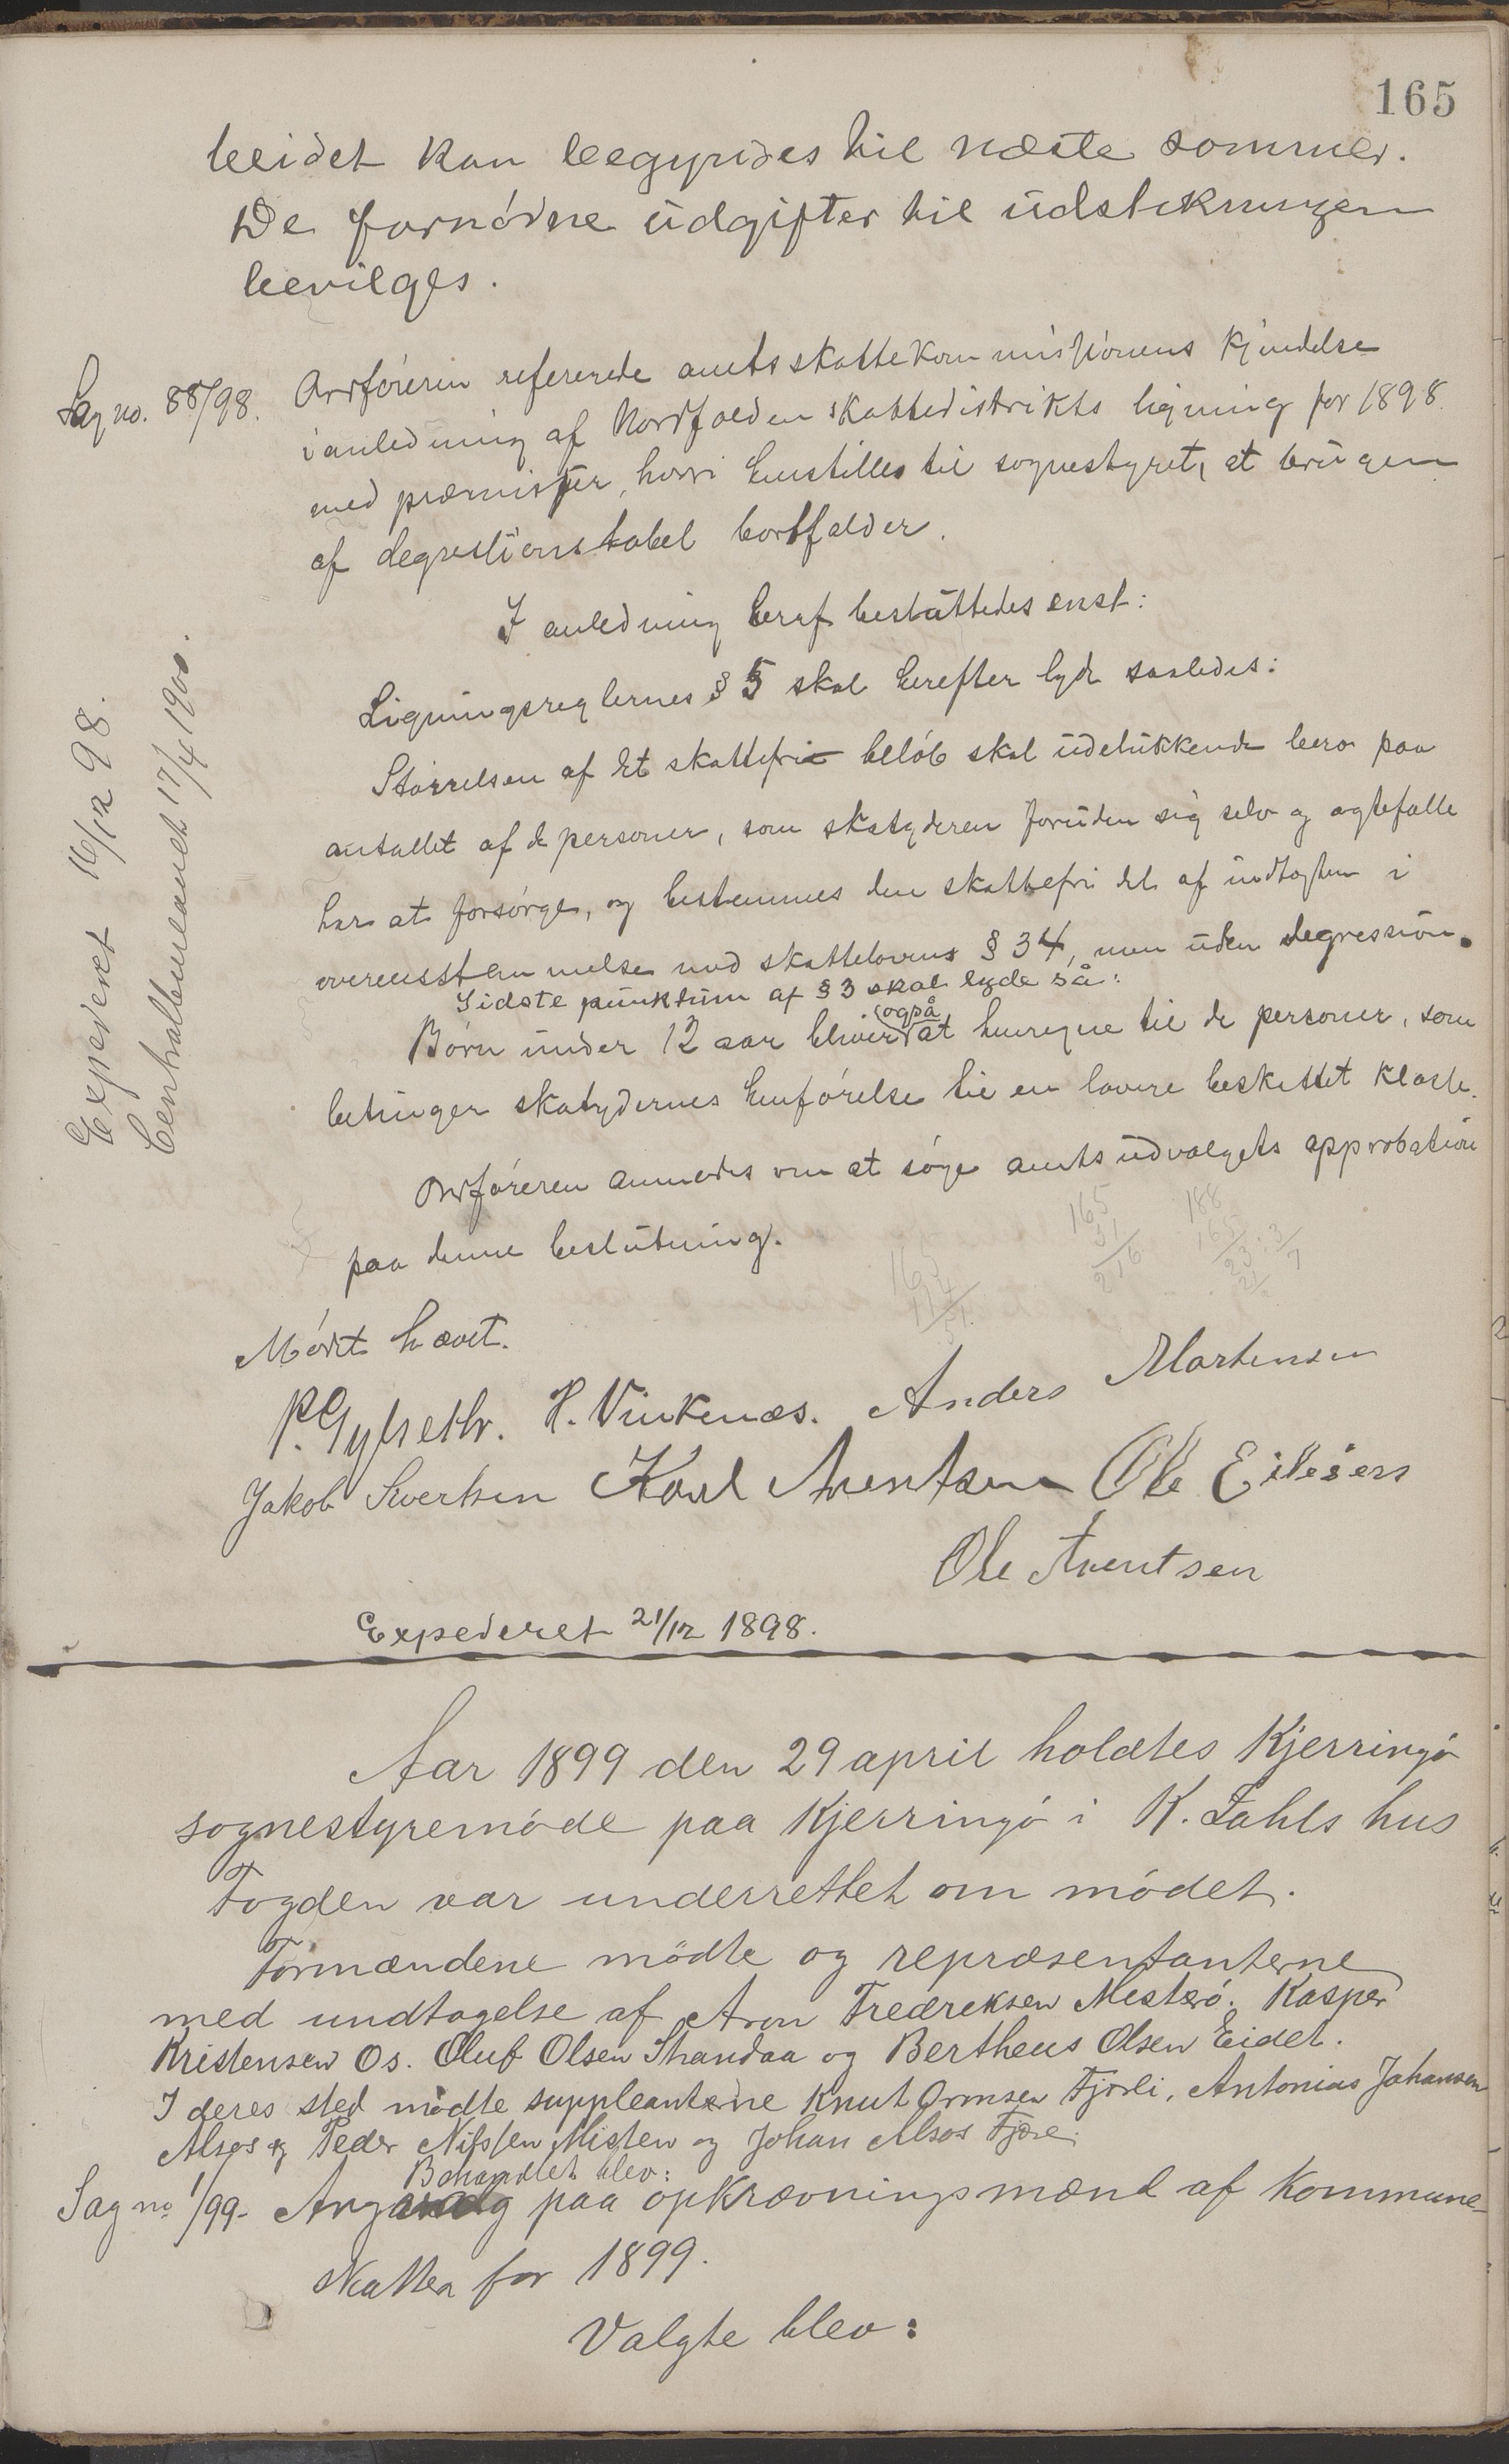 165
beidet kan begyndes til næste sommer.
De fornødne udgifter til udstikningen
bevilges.
Sag no. 88/98. Ordføreren refererede amtsskattekommissionens kjendelse
i anledning af Nordfolden skattedistrikts ligning for 1898
med præmisser, hvori henstilles til sognestyret, at brugen
af degressionstabel bortfalder.
I anledning heraf besluttedes enst:
Ligningsreglernes § 5 skal herefter lyde saaledes:
Størrelsen af det skattefri beløb skal udelukkende bero paa
antallet af de personer, som skatyderen foruden sig selv og ægtefælle
har at forsørge, og bestemmes den skattefri del af indtægten i
overensstemmelse med skattelovens § 34, men uden degression.
Sidste punktum af § 3 skal lyde så:
Børn under 12 aar bliver også at henregne til de personer, som
betinger skatydernes henførelse til en lavere beskattet klasse.
Ordføreren anmodes om at søge amtsudvalgets approbation
paa denne beslutning.
Expederet 16/12 98.
Centralbureauet 17/4 1900.
165
51
216
188
165
23:3
21
7
Mødet hævet.
P. Gylseth. H. Vinkenæs. Anders Martensen
Jakob Sivertsen Karl Arentsen Ole
Ole Arentsen
Expederet 21/12 1898.
Aar 1899 den 29 april holdtes Kjerringø
sognestyremøde paa Kjerringø i K. Zahls hus
Fogden var underrettet om mødet.
Formændene mødte og repræsentanterne
med undtagelse af Aron Fredreksen Mesterø. Kasper
Kristensen Os. Oluf Olsen Strandaa og Bertheus Olsen Eidet.
I deres sted mødte suppleanterne Knut Ormsen Fjorli, Antonius Johansen
Alsos og Peder Nilssen Misten og Johan Alsos Fjære.
Behandlet blev:
Sag no 1/99. paa opkrævningsmænd af Kommune-
skatten for 1899.
Valgte blev: